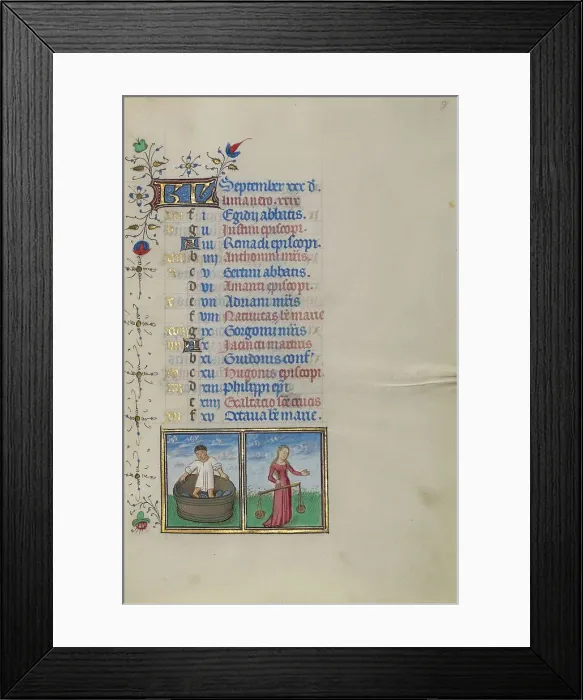 9
KL September xxx d.
luna vero. xxix
f i Egidij abbatis.
g ii Justini episcopi.
A iii Remacli episcopi.
b iiii Anthonini mris.
c v Bertini abbatis.
d vi Amanti episcopi.
e vii Adriani mris
f viii Nativitas be marie
g ix Gorgonij mris
A x Jacincti martiris
b xi Guidonis conf
c xii Hugonis episcopi.
d xiii Philippi epi.
e xiiii Exaltacio sce crucis
f xv Octava be marie.